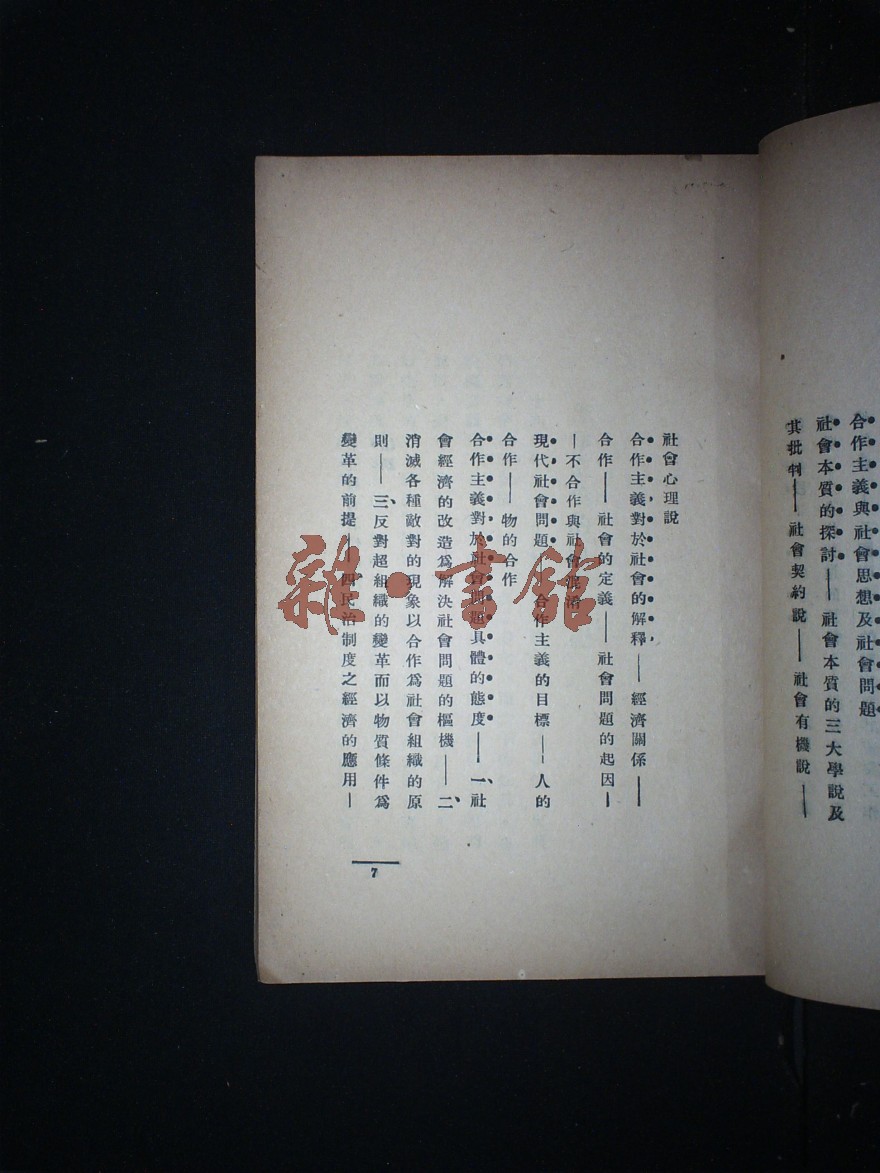 合作主義與社會思想及社會問題
社會本質的探討——社會本質的三大學說及
其批判——社會契約說——社會有機說——
社會心理說
合作主義對於社會的解釋——經濟關係——
合作——社會的定義——社會問題的起因—
—不合作與社會混淆
現代社會問題，合作主義的目標——人的
合作——物的合作
合作主義對於社會問題具體的態度——一、社
會經濟的改造爲解決社會問題的樞機——二、
消滅各種敵對的現象以合作爲社會組織的原
則——三、反對超組織的變革而以物質條件爲
變革的前提 四民治制度之經濟的應用—
7
雜·書館